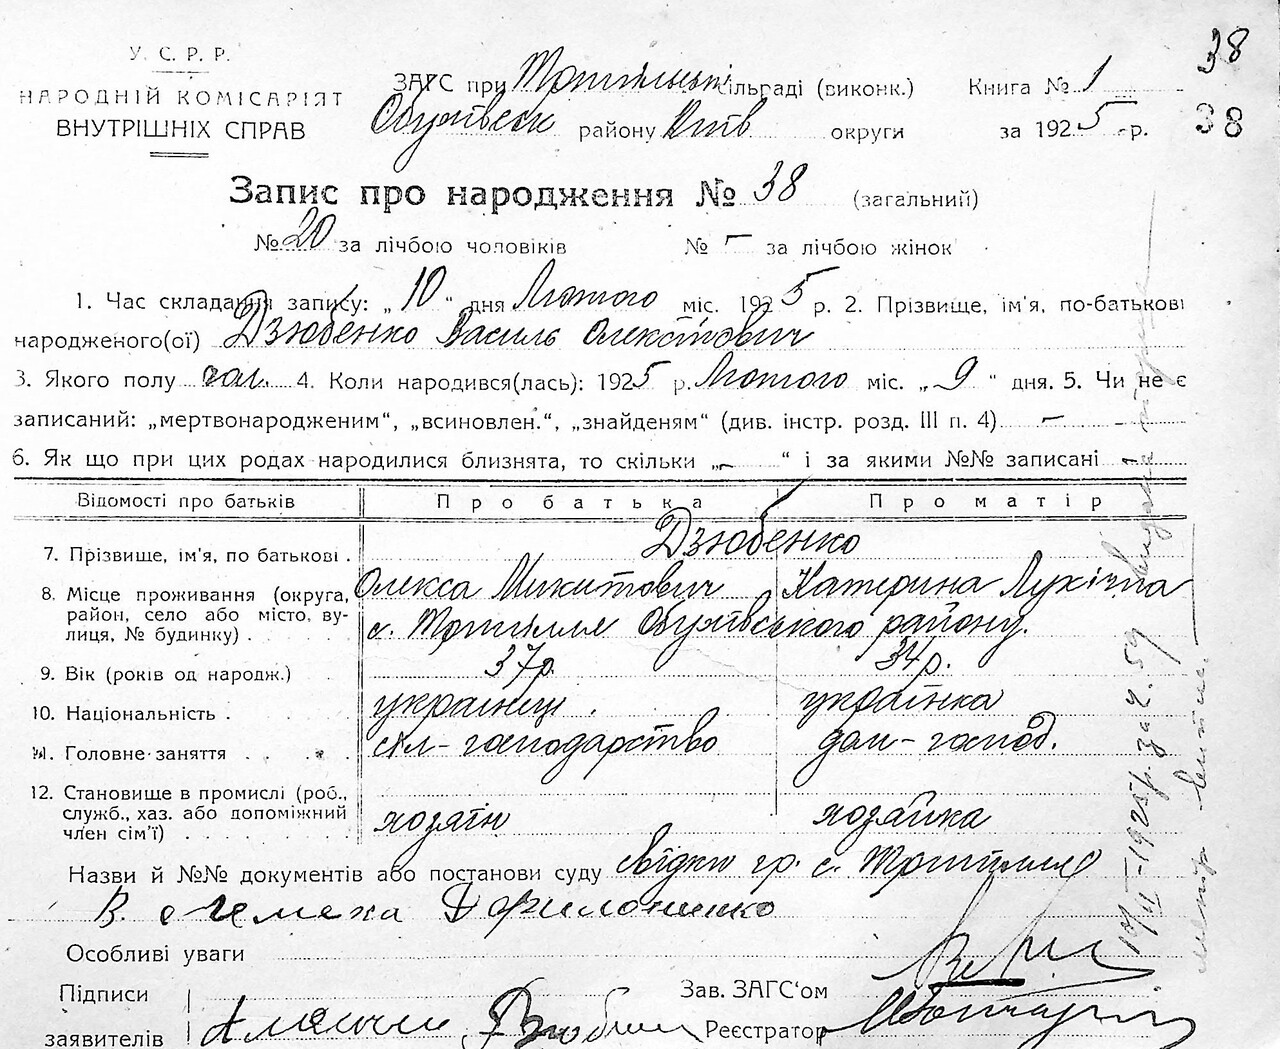 38
У. С. Р. Р.
НАРОДНІЙ КОМІСАРІЯТ
ВНУТРІШНІХ СПРАВ
ЗАГС при Трипільські сільраді (виконк.) Книга № 1
Обухівськ району Київ округи за 1925 р.
38
Запис про народження № 38 (загальний)
№ 20 за лічбою чоловіків № – за лічбою жінок
1. Час складання запису: „10“ дня Лютого міс. 1925 р. 2. Прізвище, ім'я, по-батькові
народженого(ої) Дзюбенко Василь Олексійович
3. Якого полу чол. 4. Коли народився(лась): 1925 р. Лютого міс. „9“ дня. 5. Чи не є
записаний: „мертвонародженим“, „всиновлен.“, „знайденям“ (див. інстр. розд. III п. 4) –
6. Як що при цих родах народилися близнята, то скільки „–“ і за якими №№ записані –
Відомості про батьків Про батька Про матір
7. Прізвище, ім'я, по батькові . Дзюбенко
Олекса Микитович Катерина Лукічна
8. Місце проживання (округа, район, село або місто, ву-
лиця, № будинку) . с. Трипілля Обухівського району.
9. Вік (років од народж.) 37р. 34р.
10. Національність . українець . українка
11. Головне заняття . сіл-господарство дом-господ.
12. Становище в промислі (роб.,
служб., хаз. або допоміжний
член сім'ї) . хозяїн хозяйка
Назви й №№ документів або постанови суду свідки гр. с. Трипілля
Особливі уваги
Підписи Зав. ЗАГС'ом
заявителів Реєстратор